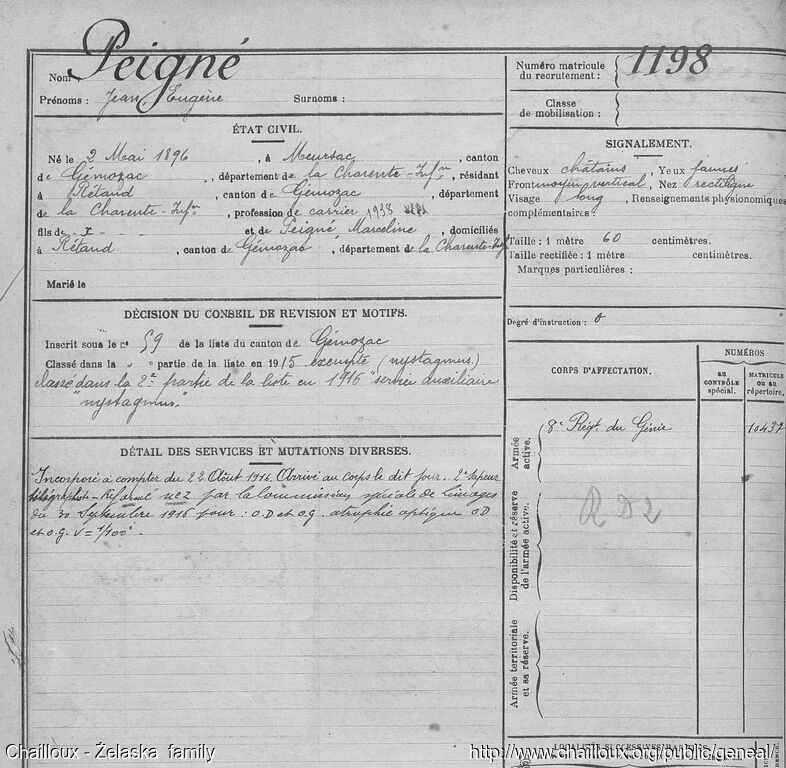 Nom : Peigné
Prénoms : Jean, Eugène Surnoms :
Numéro matricule du recrutement : 1198
Classe de mobilisation :
ÉTAT CIVIL.
Né le 2 Mai 1896, à Meursac, canton
de Gémozac, département de la Charente-Infre, résidant
à Rétaud, canton de Gémozac, département
de la Charente-Infre, profession de carrier 1938
fils de x et de Peigné Marceline, domiciliés
à Rétaud, canton de Gémozac, département de la Charente-Infre
Marié le
SIGNALEMENT.
Cheveux châtains, Yeux
Front moyen vertical, Nez rectiligne
Visage long, Renseignements physionomiques
complémentaires
Taille : 1 mètre 60 centimètres.
Taille rectifiée : 1 mètre centimètres.
Marques particulières :
Degré d'instruction : 0
DÉCISION DU CONSEIL DE REVISION ET MOTIFS.
Inscrit sous le no 59 de la liste du canton de Gémozac
Classé dans la " partie de la liste en 1915 exempté (nystagmus.)
classé dans la 2e partie de la liste en 1916 "service auxiliaire
"nystagmus."
DÉTAIL DES SERVICES ET MUTATIONS DIVERSES.
Incorporé à compter du 22 Août 1916. Arrivé au corps le dit jour. 2e Sapeur
télégraphiste - Réformé no 2 par la Commission spéciale de Limoges
du 30 Septembre 1916 pour : O.D et O.G. atrophie optique O.D
et O.G. V = 1/100e.
CORPS D'AFFECTATION.
NUMÉROS
AU CONTRÔLE spécial.
MATRICULE OU AU répertoire.
Armée active.
8e Régt. du Génie 10437
Disponibilité et réserve de l'armée active.
RD2
Armée territoriale et sa réserve.
LOCALITÉS SUCCESSIVES HABITÉES
Chailloux - Želaska family
http://www.chailloux.org/public/geneal/